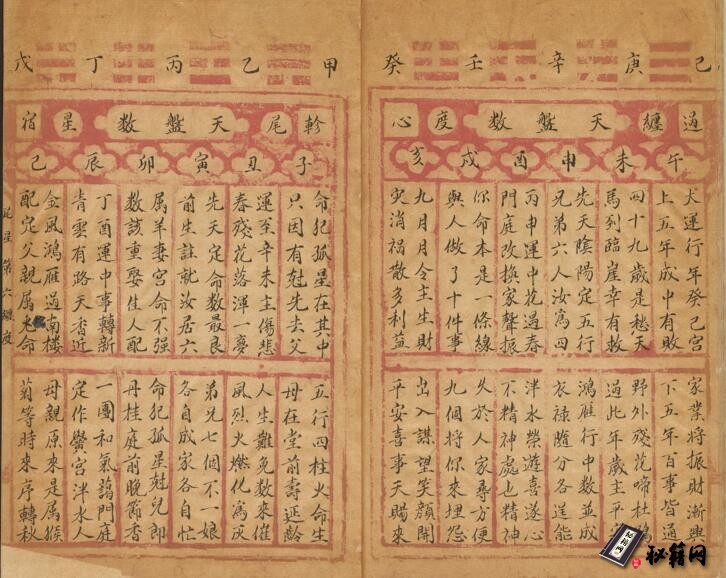 己庚辛壬癸
過纏天盤數度心
午未申酉戌亥
大運行年癸巳宮
上五年成中有敗
四十九歲是愁天
馬列臨崖幸有救
先天陰陽定五行
兄弟六人汝寫四
丙申運中花過春
門庭改換家聲振
你命本是一條線
與人做了十件事
九月月令主生財
灾消禍散多利益
家業將振財漸興
下五年百事皆通
野外殘花啼杜鵑
過此年歲主平安
鴻雁行中數並成
衣祿隨分各逞能
泮水榮遊喜遂心
不精神處也精神
失於人家尋方便
九個將你來埋怨
出入謀望笑顏開
平安喜事天賜來
甲乙丙丁戊
軫尾天盤數星宿
子丑寅卯辰巳
命犯孤星在其中
只因有尅先去父
運至辛未主傷悲
春殘花落渾一夢
先天定命數最良
前生註就汝居六
属羊妻宮命不强
數該重娶佳人配
丁酉運中事轉新
青雲有路天香近
金風鴻雁過南樓
配定父親属命
五行四柱火命生
母在堂前壽延齡
人生難免數來催
風烈火燃化為灰
弟兄七個不一娘
各自成家各自忙
命犯孤星尅兒郎
丹桂庭前晚節香
一團和氣藹門庭
定作黌宮泮水人
母親原來是属猴
菊等時來序轉秋
星第六纏度
秘籍网
秘籍网